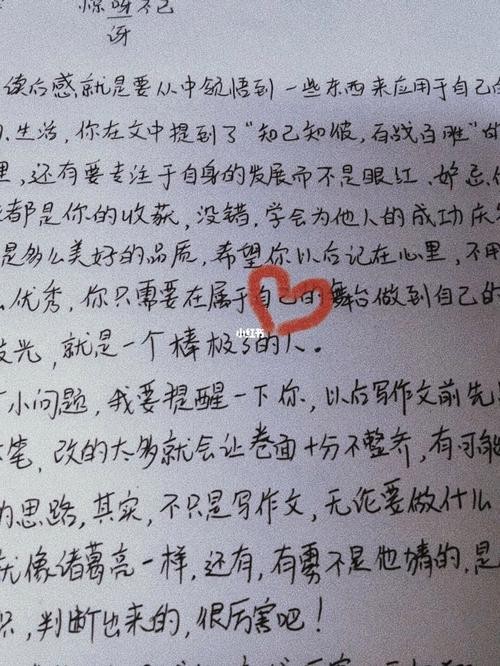 惊呀不已
讶
读后感就是要从中领悟到一些东西来应用于自己
生活，你在文中提到了“知己知彼，百战百胜”的
里，还有要专注于自身的发展而不是眼红、妒忌、
都是你的收获，没错，学会为他人的成功庆
是多么美好的品质，希望你以后记在心里，不用
优秀，你只需要在属于自己的舞台做到自己的
发光，就是一个棒极了的人。
小问题，我要提醒一下你，以后写作文前先
笔，改的太多就会让卷面十分不整齐，有可能
的思路，其实，不只是写作文，无论要做什么
就像诸葛亮一样，还有，有雾不是他猜的，是
识，判断出来的，很厉害吧！
小红书